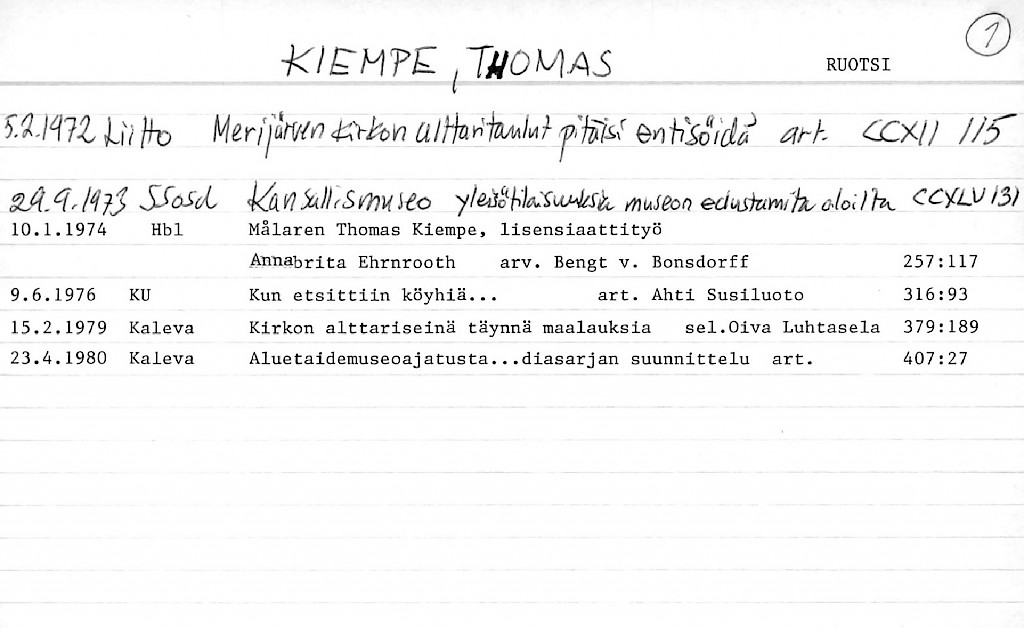 1
KIEMPE, THOMAS RUOTSI
5.2.1972 Liitto Merijärven kirkon alttaritaulut pitäisi entisöidä art. CCXII 115
29.9.1973 SSosd Kansallismuseo yleisötilaisuuksia museon edustamilta aloilta CCXLV 131
10.1.1974 Hbl Målaren Thomas Kiempe, lisensiaattityö
Annabrita Ehrnrooth arv. Bengt v. Bonsdorff 257:117
9.6.1976 KU Kun etsittiin köyhiä... art. Ahti Susiluoto 316:93
15.2.1979 Kaleva Kirkon alttariseinä täynnä maalauksia sel.Oiva Luhtasela 379:189
23.4.1980 Kaleva Aluetaidemuseoajatusta...diasarjan suunnittelu art. 407:27